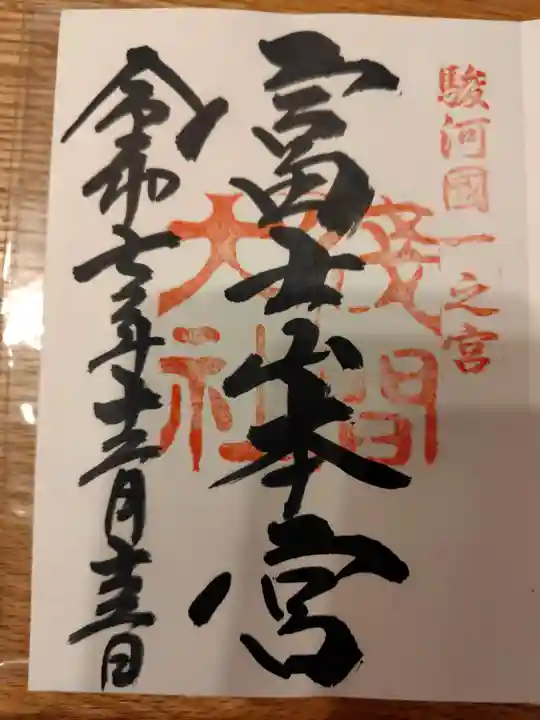 駿河國一之宮
富士山本宮
淺間
大社
令和七年十二月十日